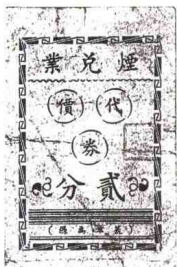 煙兌業
代價
券
貳分